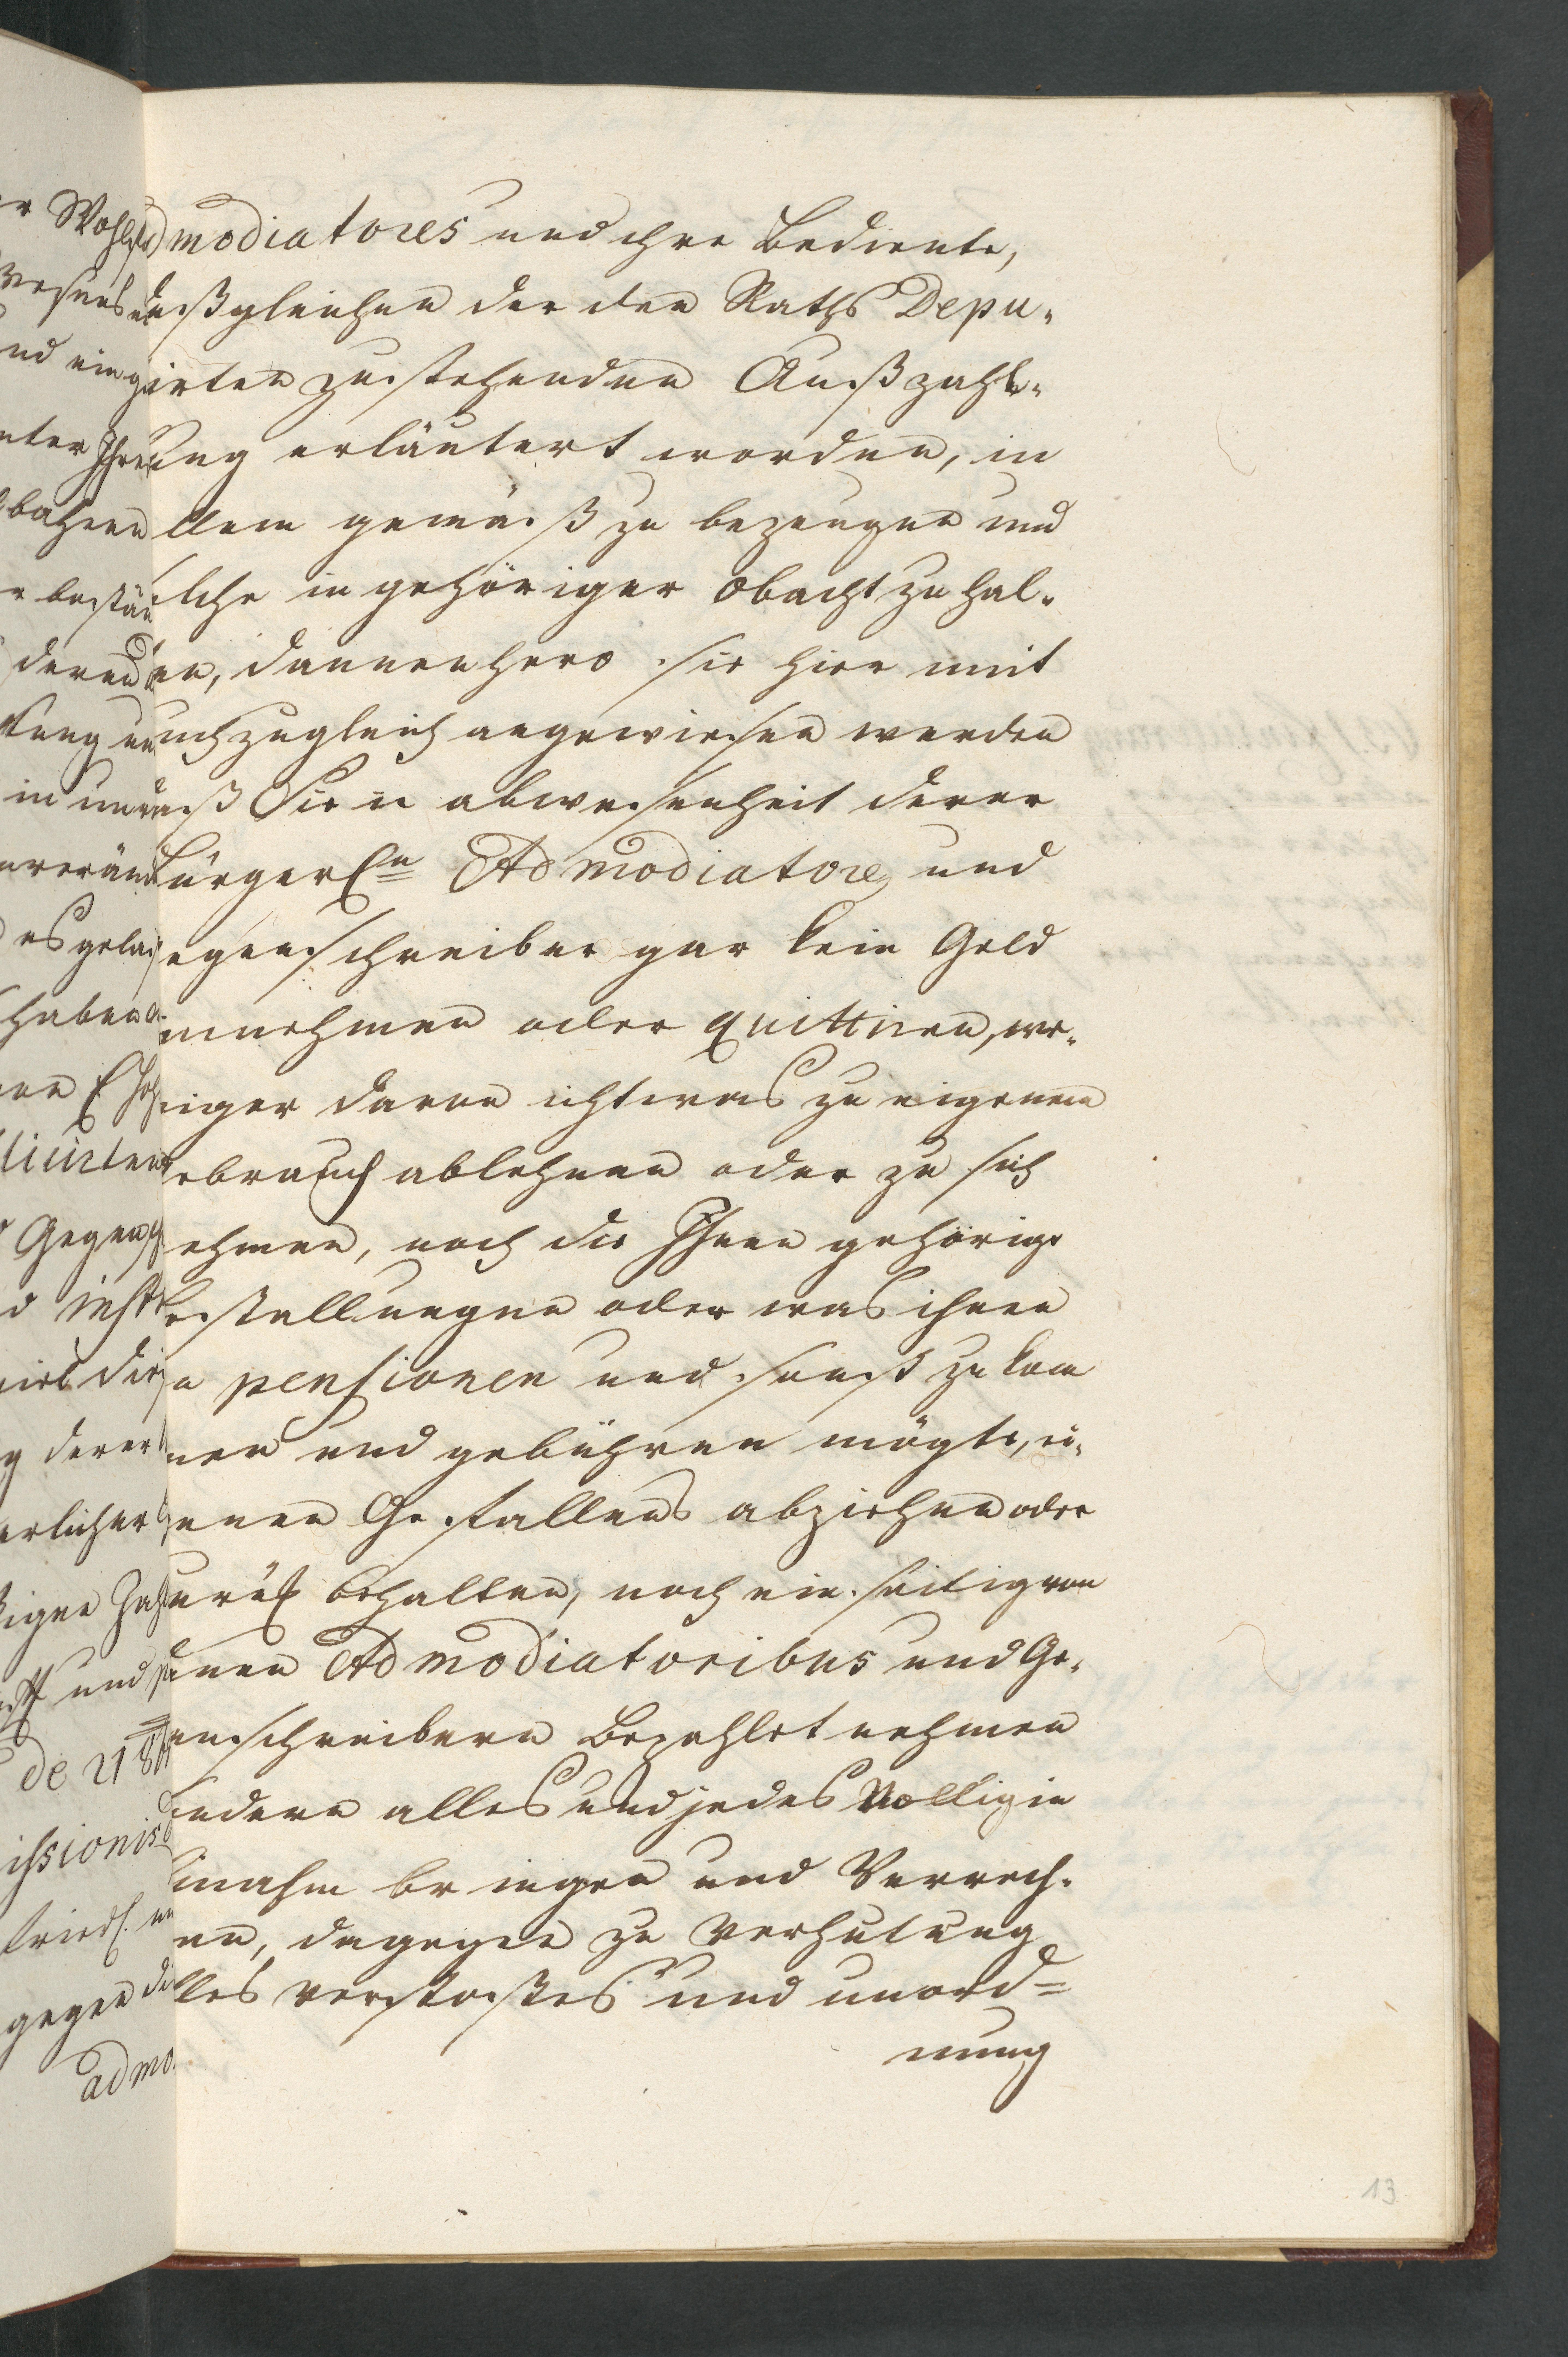 modiatores und ihre Bediente,
deßgleichen der den Raths Depu-
irten zustehenden Außzahl-
ung erläutert worden, in
llem gemäß zu bezeugen und
olche in gehöriger obacht zu hal-
en, dannenhero sie hier mit
uch zugleich angewiesen werden
aß Sie in abwesenheit derer
Bürgerln Admodiatores und
egenschreiber gar kein Geld
innehmen oder quittiren, we-
niger davon ichtwas zu eigenem
ebrauch ablehnen oder zu sich
ehmen, noch die Ihnen gehörige
Bestallungen oder was ihnen
n pensionen und sonst zu kom
men und gebühren mögte, ei-
genen Gefallens abziehen oder
zurük behalten, noch einseitig von
denen Admodiatoribus und Ge-
enschreibern Bezahlet nehmen
ondern alles und jedes Völlig in
innahm bringen und Verrech-
en, dagegen zu Verhutung
lles verstoßes und unord=
nung
13